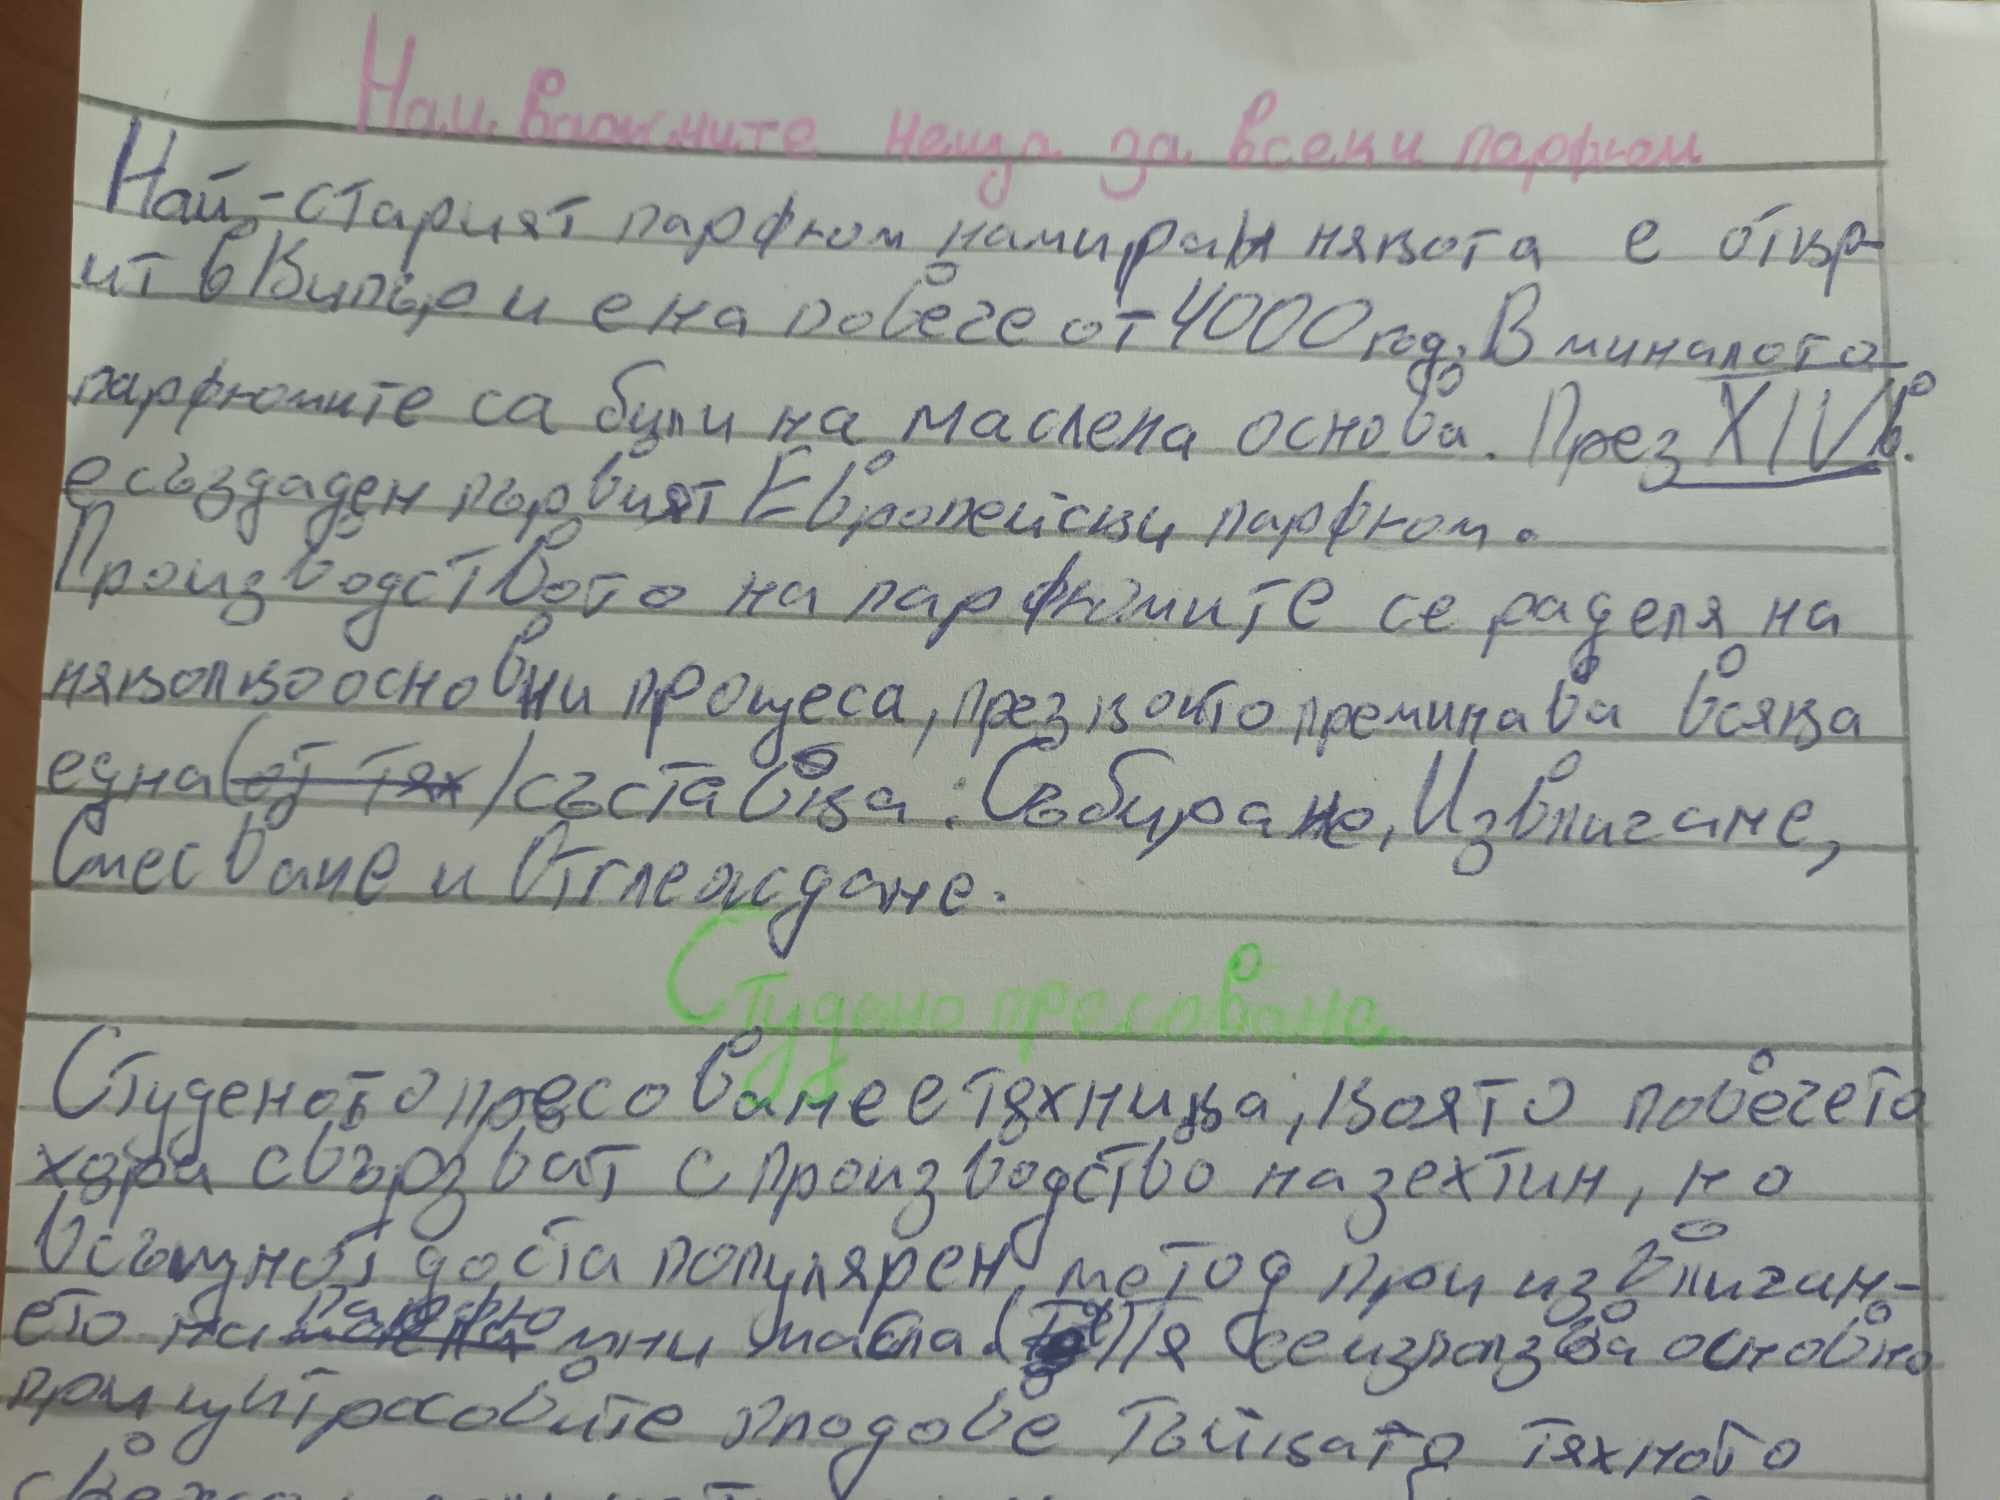 Най важните неща за всеки парфюм
Най-старият парфюм намиран някога е откр-
ит в Кипър и е на повече от 4000 год. В миналото
парфюмите са били на маслена основа. През XIV в.
е създаден първият Европейски парфюм.
Производството на парфюмите се раделя на
няколко основни процеса, през които преминава всяка
една (от тях) съставка: Събиране, Извличане,
Смесване и Отглеждане.
Студено пресоване
Студеното пресоване е техника, която повечето
хора свързват с производство на зехтин, но
всъщност доста популярен метод при извличан-
ето на парфюмни масла. Тя се използва основно
при цитросовите плодове тъй като тяхното